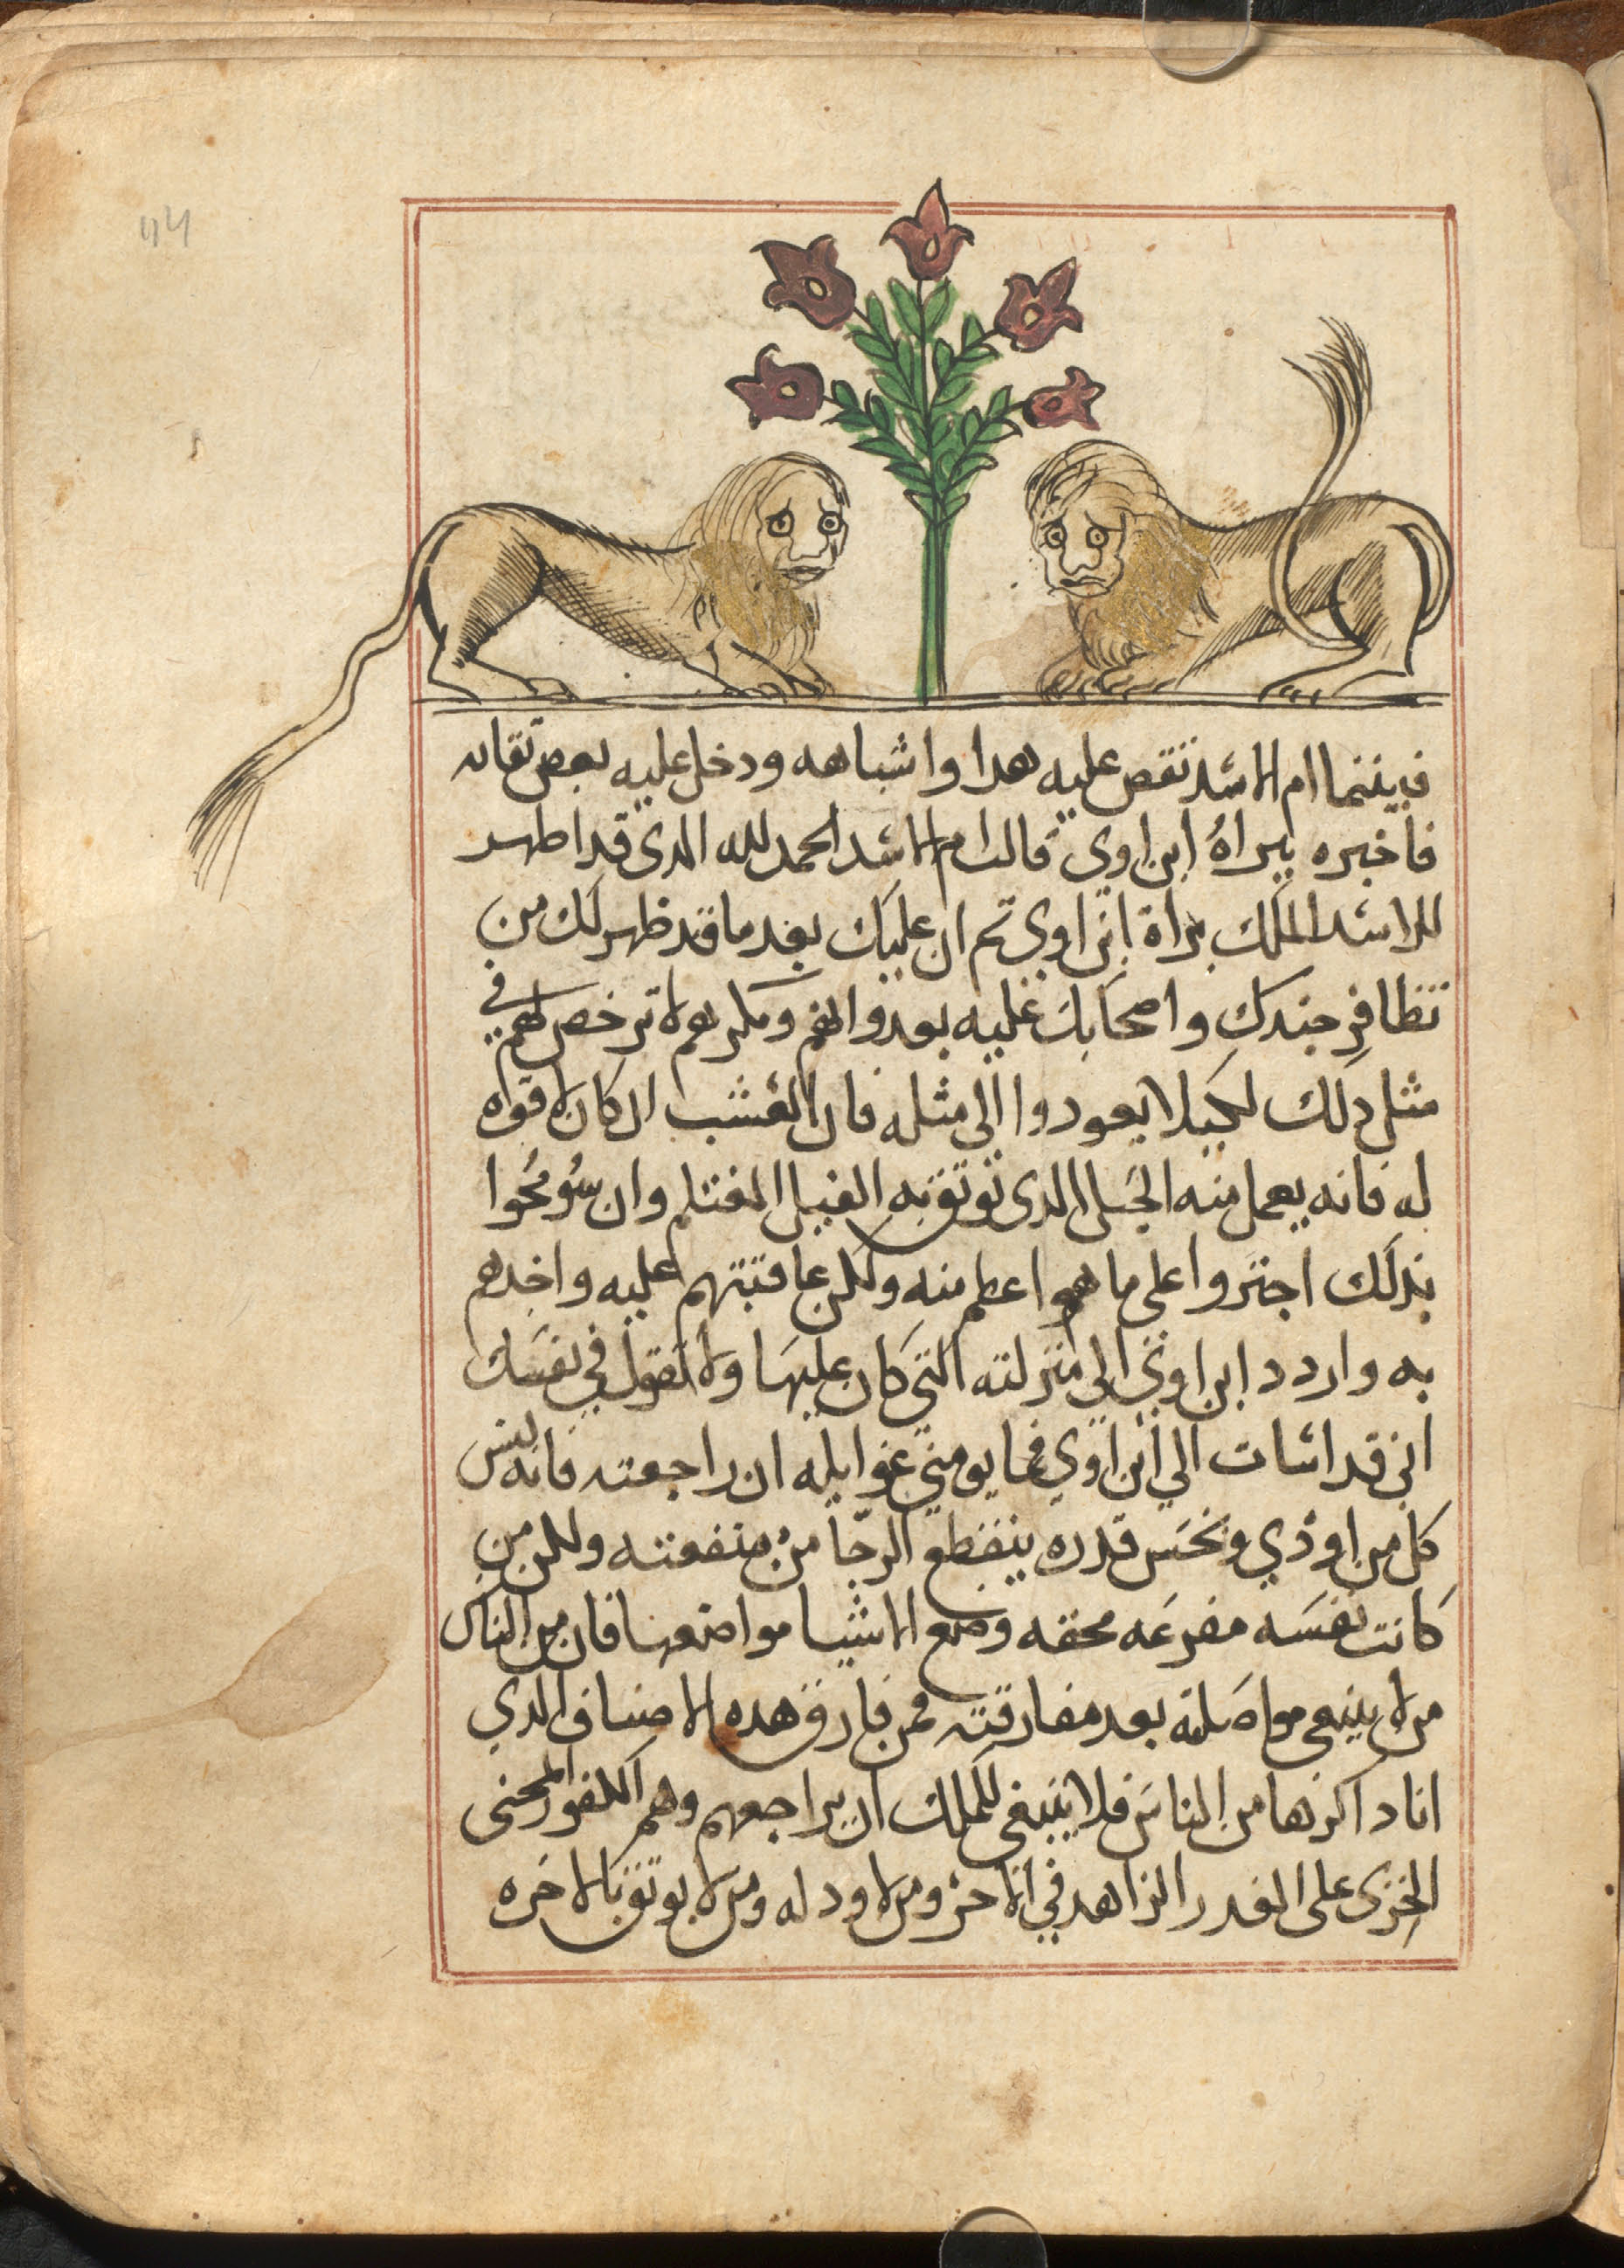 فبينما ام الاسد تقص عليه هدا واشباهه ودخل عليه بعض تقاته
فاخبره ببراة ابن اوي قالت ام الاسد الحمد لله الدى قد اظهر
للاسد الملك براة ابن اوي تم ان عليك بعد ما قد ظهر لك من
تظافر جندك واصحابك عليه بعدوانهم ومكرهم لا ترخص لهم في
مثل دلك لكيلا يعودوا الى مثله فان العشب ان كان لا قوه
له فانه يعمل منه الحبل الدى توتق به الفيل المغتلم وان سومحوا
بدلك اجتروا على ما هو اعظم منه ولكن عاقبتهم عليه واخدهم
به واردد ابن اوي الى منزلته التي كان عليها ولا تقول في نفسك
انى قد اسات الي ابن اوي فما يومني غوايله ان راجعته فانه ليس
كل من اودي وبخس قدره ينقطع الرجا من منفعته ولكن من
كانت نفسه محقه وضع الاشيا مواضعها فان من الناس
من لا ينبغى مواصلته بعد مفارقته فمن فارق هده الاصناف الدي
انا داكرها من الناس فلا ينبغى للملك ان يراجعهم وهم الكفور
على الغدر الزاهد في ومن لا ود له ومن لا يوتق بالاخره